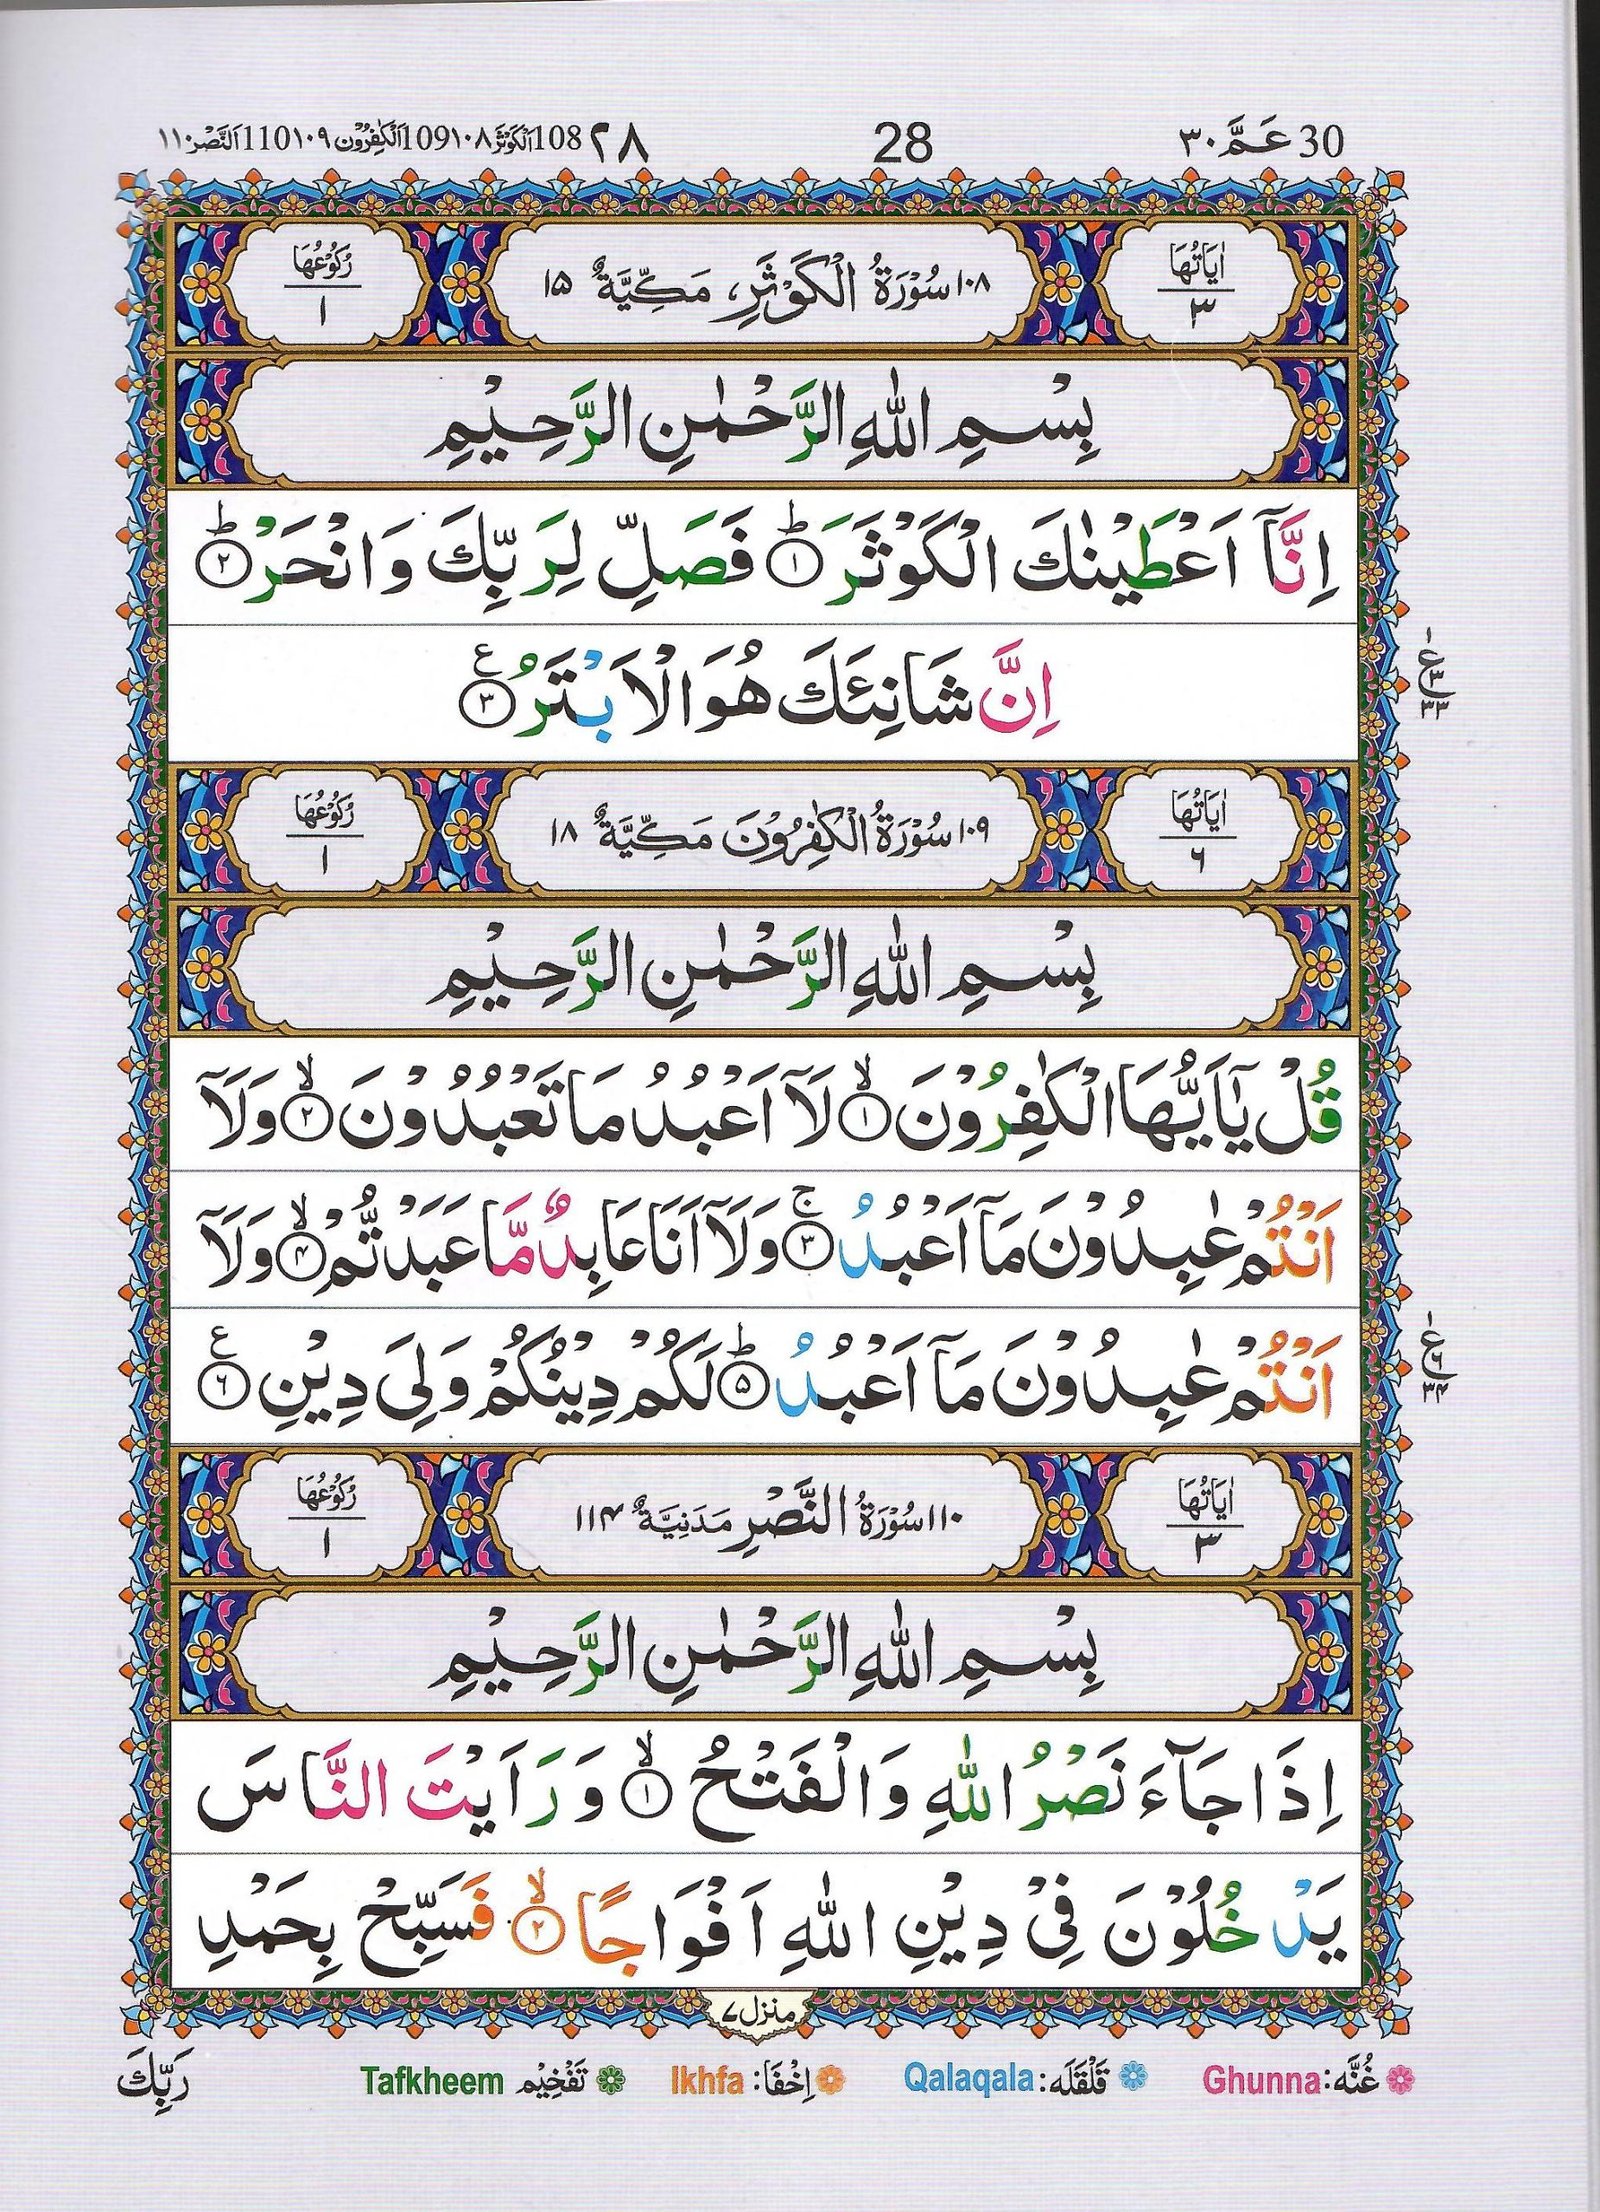 30 عَمَّ ٣٠ 28 ٢٨ 108 اَلْكَوْثَر ١٠٨ 109 اَلْكٰفِرُوْن ١٠٩ 110 اَلنَّصْر ١١٠
اٰيَاتُهَا ٣ ١٠٨ سُوْرَةُ الْكَوْثَرِ مَكِّيَّةٌ ١٥ رُكُوْعُهَا ١
بِسْمِ اللّٰهِ الرَّحْمٰنِ الرَّحِيْمِ
اِنَّاۤ اَعْطَيْنٰكَ الْكَوْثَرَ ؕ﴿١﴾ فَصَلِّ لِرَبِّكَ وَانْحَرْ ؕ﴿٢﴾
اِنَّ شَانِئَكَ هُوَالْاَبْتَرُ ﴿٣﴾ ع
ع ٣ ٣٣
اٰيَاتُهَا ٦ ١٠٩ سُوْرَةُ الْكٰفِرُوْنَ مَكِّيَّةٌ ١٨ رُكُوْعُهَا ١
بِسْمِ اللّٰهِ الرَّحْمٰنِ الرَّحِيْمِ
قُلْ يٰۤاَيُّهَاالْكٰفِرُوْنَ ۙ﴿١﴾ لَاۤ اَعْبُدُ مَا تَعْبُدُوْنَ ۙ﴿٢﴾ وَلَاۤ
اَنْتُمْ عٰبِدُوْنَ مَاۤ اَعْبُدُ ۚ﴿٣﴾ وَلَاۤ اَنَا عَابِدٌ مَّا عَبَدْتُّمْ ۙ﴿۴﴾ وَلَاۤ
اَنْتُمْ عٰبِدُوْنَ مَاۤ اَعْبُدُ ؕ﴿۵﴾ لَكُمْ دِيْنُكُمْ وَلِىَ دِيْنِ ﴿٦﴾ ع
ع ٦ ٣۴
اٰيَاتُهَا ٣ ١١٠ سُوْرَةُ النَّصْرِ مَدَنِيَّةٌ ١١۴ رُكُوْعُهَا ١
بِسْمِ اللّٰهِ الرَّحْمٰنِ الرَّحِيْمِ
اِذَا جَآءَ نَصْرُ اللّٰهِ وَالْفَتْحُ ۙ﴿١﴾ وَرَاَيْتَ النَّاسَ
يَدْخُلُوْنَ فِىْ دِيْنِ اللّٰهِ اَفْوَاجًا ۙ﴿٢﴾ فَسَبِّحْ بِحَمْدِ
منزل ٧
غُنَّه: Ghunna قَلْقَلَه: Qalaqala اِخْفَا: Ikhfa تَفْخِيْم Tafkheem رَبِّكَ